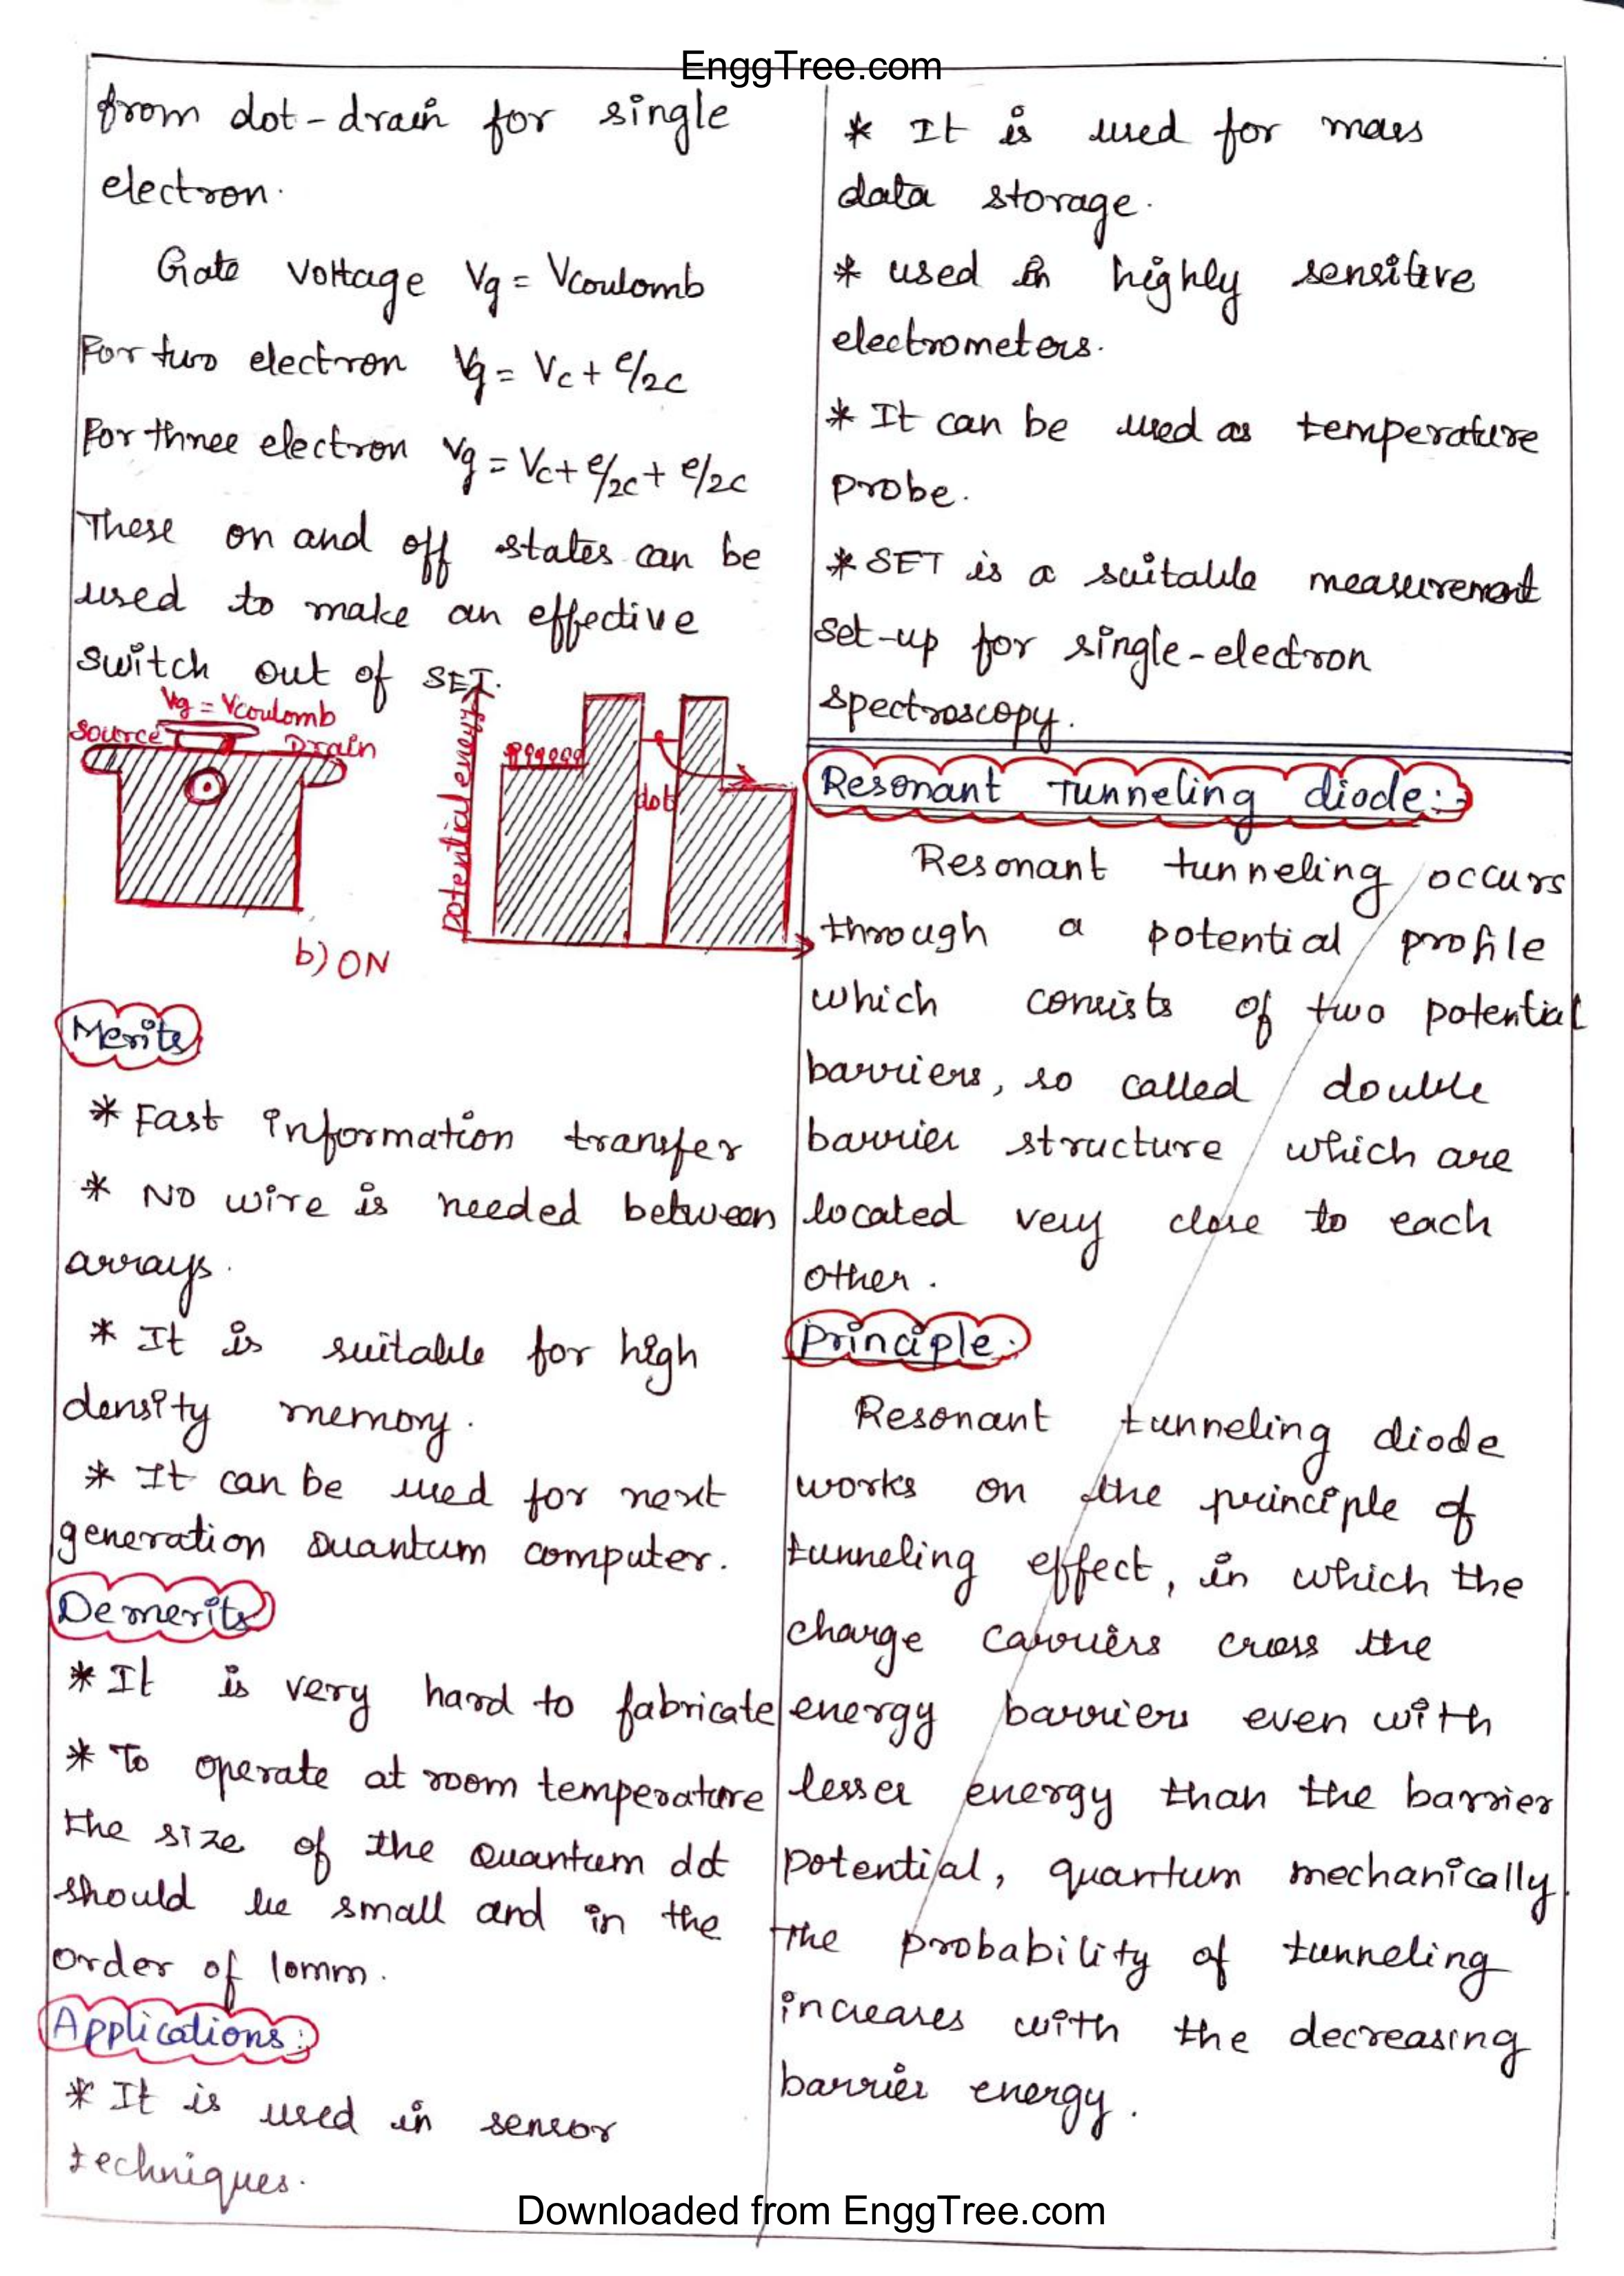 EnggTree.com
from dot-drain for single
electron.
Gate voltage Vg = Vcoulomb
For two electron Vg = Vc + e/2c
For three electron Vg = Vc + e/2c + e/2c
These on and off states can be
used to make an effective
switch out of SET.
Vg = Vcoulomb
Source
Drain
Potential energy
dot
b) ON
Merits
* Fast information transfer
* No wire is needed between
arrays.
* It is suitable for high
density memory.
* It can be used for next
generation Quantum computer.
Demerits
* It is very hard to fabricate
* To operate at room temperature
the size of the Quantum dot
should be small and in the
order of 10mm.
Applications:
* It is used in sensor
techniques.
* It is used for mass
data storage.
* used in highly sensitive
electrometers.
* It can be used as temperature
probe.
* SET is a suitable measurement
set-up for single-electron
spectroscopy.
Resonant Tunneling diode:-
Resonant tunneling occurs
through a potential profile
which consists of two potential
barriers, so called double
barrier structure which are
located very close to each
other.
Principle:
Resonant tunneling diode
works on the principle of
tunneling effect, in which the
charge carriers cross the
energy barriers even with
lesser energy than the barrier
potential, quantum mechanically.
The probability of tunneling
increases with the decreasing
barrier energy.
Downloaded from EnggTree.com